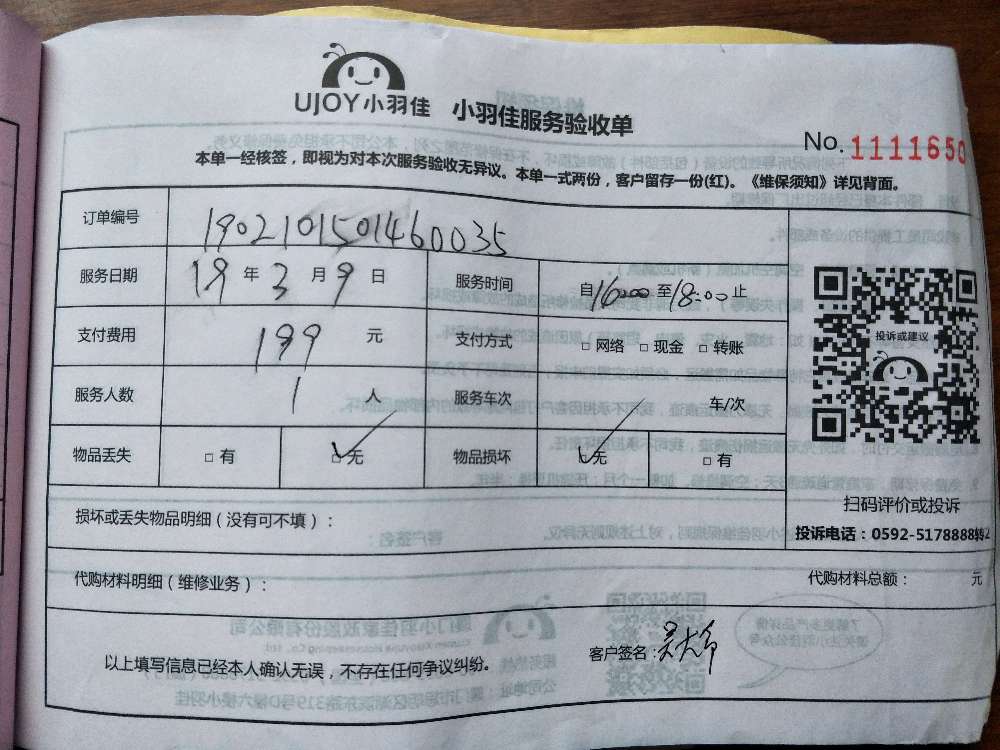 UJOY小羽佳 小羽佳服务验收单
No. 1111650
本单一经核签，即视为对本次服务验收无异议。本单一式两份，客户留存一份(红)。《维保须知》详见背面。
订单编号 1902101501460035
服务日期 19 年 3 月 9 日 服务时间 自16:00至18:00止
支付费用 199 元 支付方式 □ 网络 □ 现金 □ 转账
投诉或建议
服务人数 1 人 服务车次 车/次
物品丢失 □ 有 ☑ 无 物品损坏 ☑ 无 □ 有
扫码评价或投诉
损坏或丢失物品明细（没有可不填）：
投诉电话：0592-5178888
代购材料明细（维修业务）： 代购材料总额： 元
以上填写信息已经本人确认无误，不存在任何争议纠纷。 客户签名：